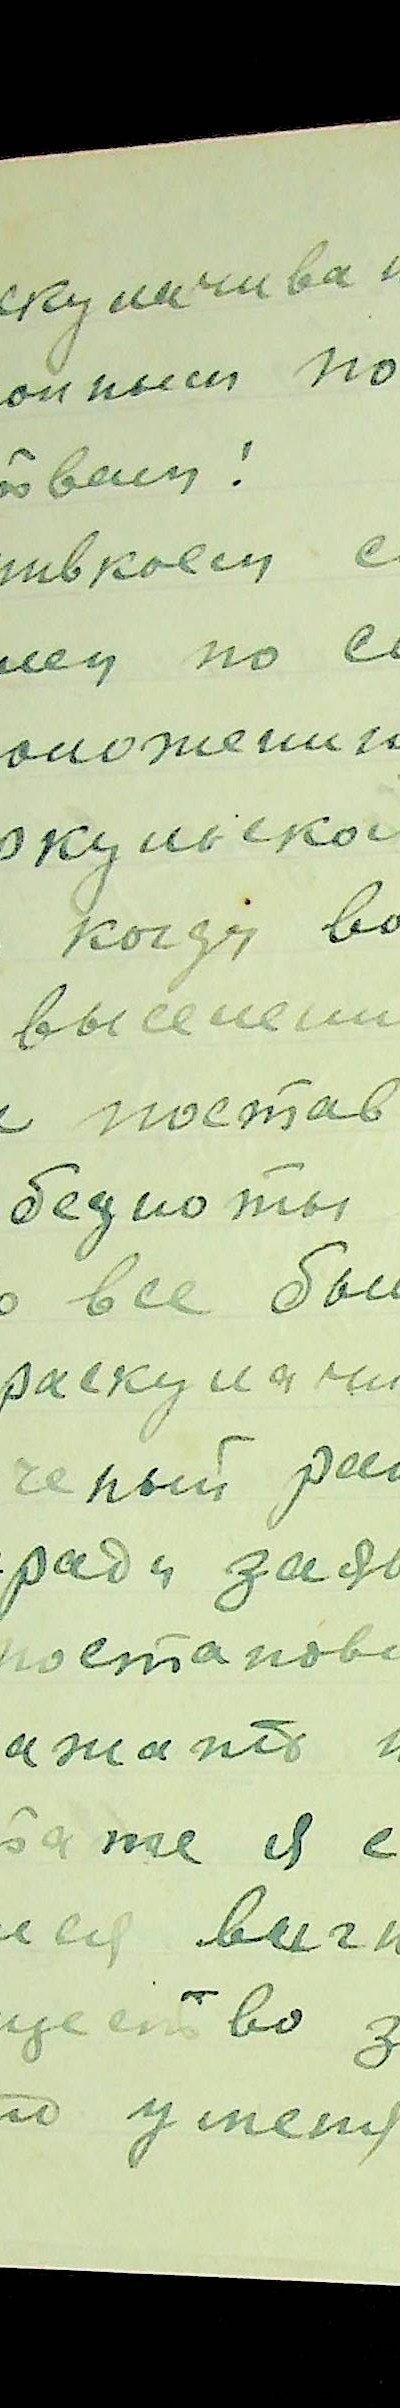 скулачива
онным по
твам!
тивкоем с
мея по св
оложени
ркульско
когда во
выселени
и постав
бедноты
о все был
раскулачи
ченый рай
ради заяв
постанови
ажать н
бате я с
мся выгн
щество з
то уменя